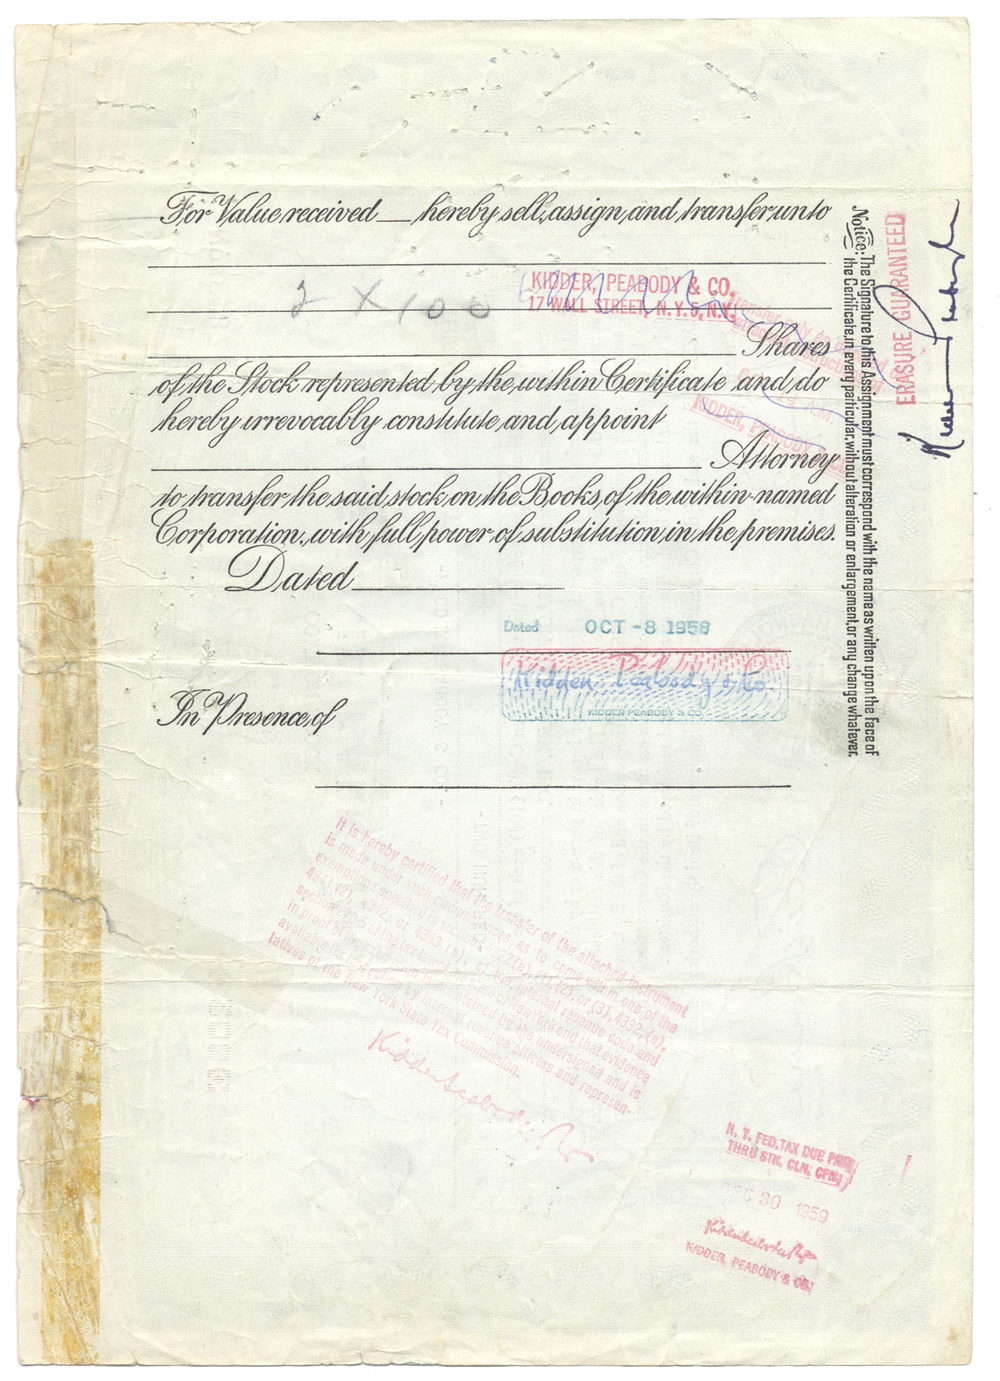 For Value received ___ hereby sell, assign, and transfer unto
2 X 100
KIDDER, PEABODY & CO.
17 WALL STREET, N.Y. 5, N.Y.
Shares
of the Stock represented by the within Certificate and do
hereby irrevocably constitute and appoint
KIDDER, PEABODY
Attorney
to transfer the said stock on the Books of the within-named
Corporation, with full power of substitution in the premises.
Dated
Dated OCT -8 1958
Kidder, Peabody & Co.
KIDDER PEABODY & CO.
In Presence of
Notice: The Signature to this Assignment must correspond with the name as written upon the face of
the Certificate, in every particular, without alteration or enlargement, or any change whatever.
ERASURE GUARANTEED
It is hereby certified that the transfer of the attached instrument
is made under such circumstances as to come within one of the
exemptions specified in section 4322(b), (1), (2), or (3), 4332, (a),
4341 (2), 4342, or 4343 (a), of the internal revenue code and
section 270.5 of the tax law
in proof of the exemption is maintained by the undersigned and is
available for inspection by internal revenue officers and represen-
tatives of the New York State Tax Commission.
Kidder Peabody & Co
N. Y. FED. TAX DUE PAID
THRU STK. CLN. CPN.
DEC 30 1959
KIDDER, PEABODY & CO.